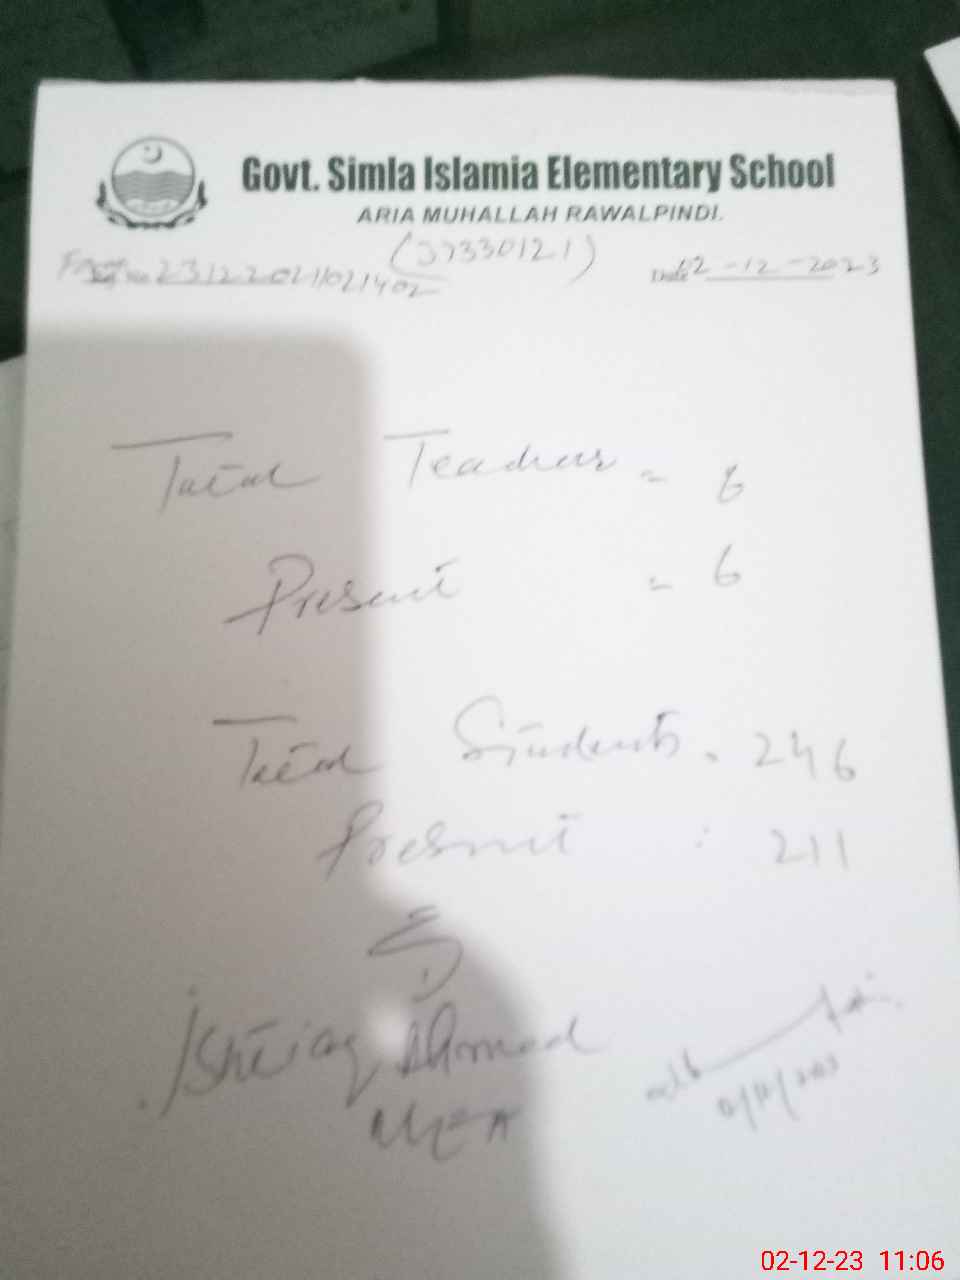 Govt. Simla Islamia Elementary School
ARIA MUHALLAH RAWALPINDI.
(37330121)
Date 02-12-2023
Total Teachers = 6
Present = 6
Total Students. 246
Present : 211
Ishtiaq Ahmad
MEA
02-12-23 11:06